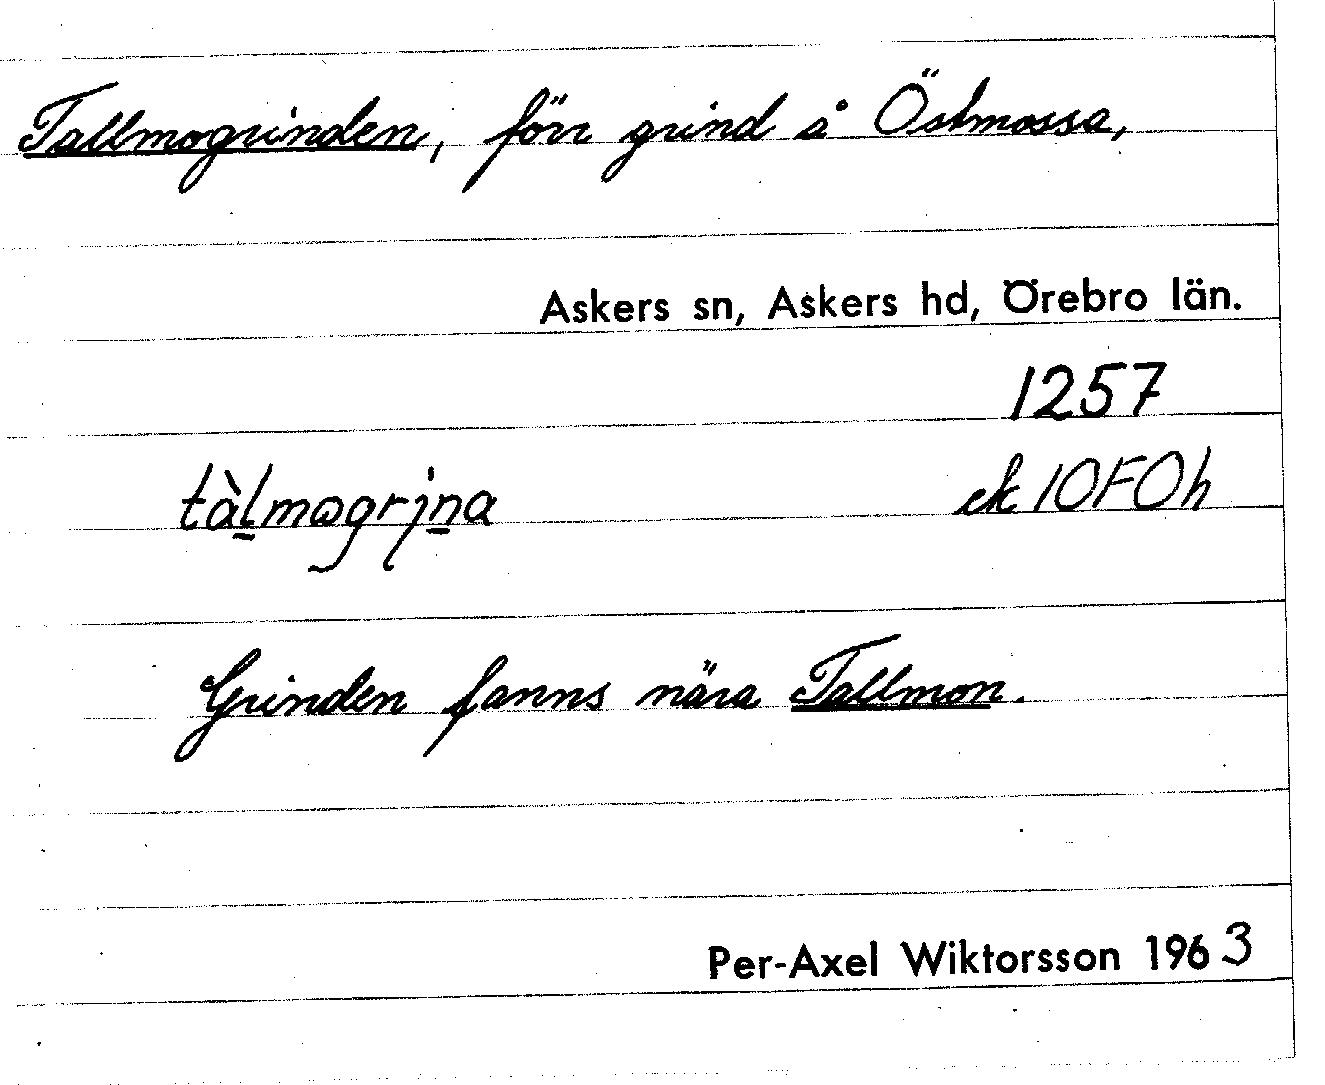 Tallmogrinden, förr grind å Östmossa,
Askers sn, Askers hd, Örebro län.
1257
tàlmωgrįna ek 10F0h
Grinden fanns nära Tallmon.
Per-Axel Wiktorsson 1963